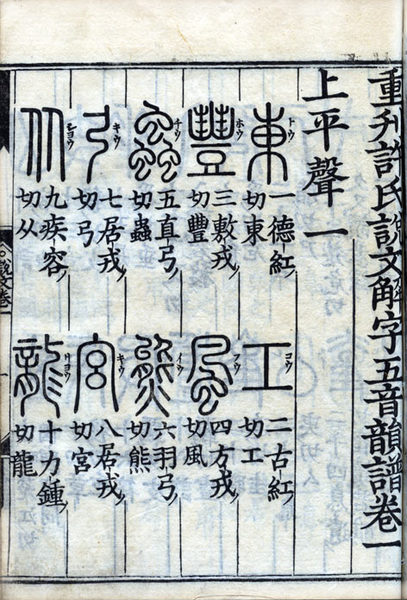 重刋許氏說文解字五音韻譜卷一
上平聲一
東 トウ
一德紅
切東
工 コウ
二古紅
切工
豐 ホウ
三敷戎
切豐
風 フウ
四方戎
切風
蟲 チウ
五直弓
切蟲
熊 イウ
六羽弓
切熊
弓 キウ
七居戎
切弓
宮 キウ
八居戎
切宮
从
九疾容
切从
龍 リヨウ
十力鍾
切龍
說文卷一
一